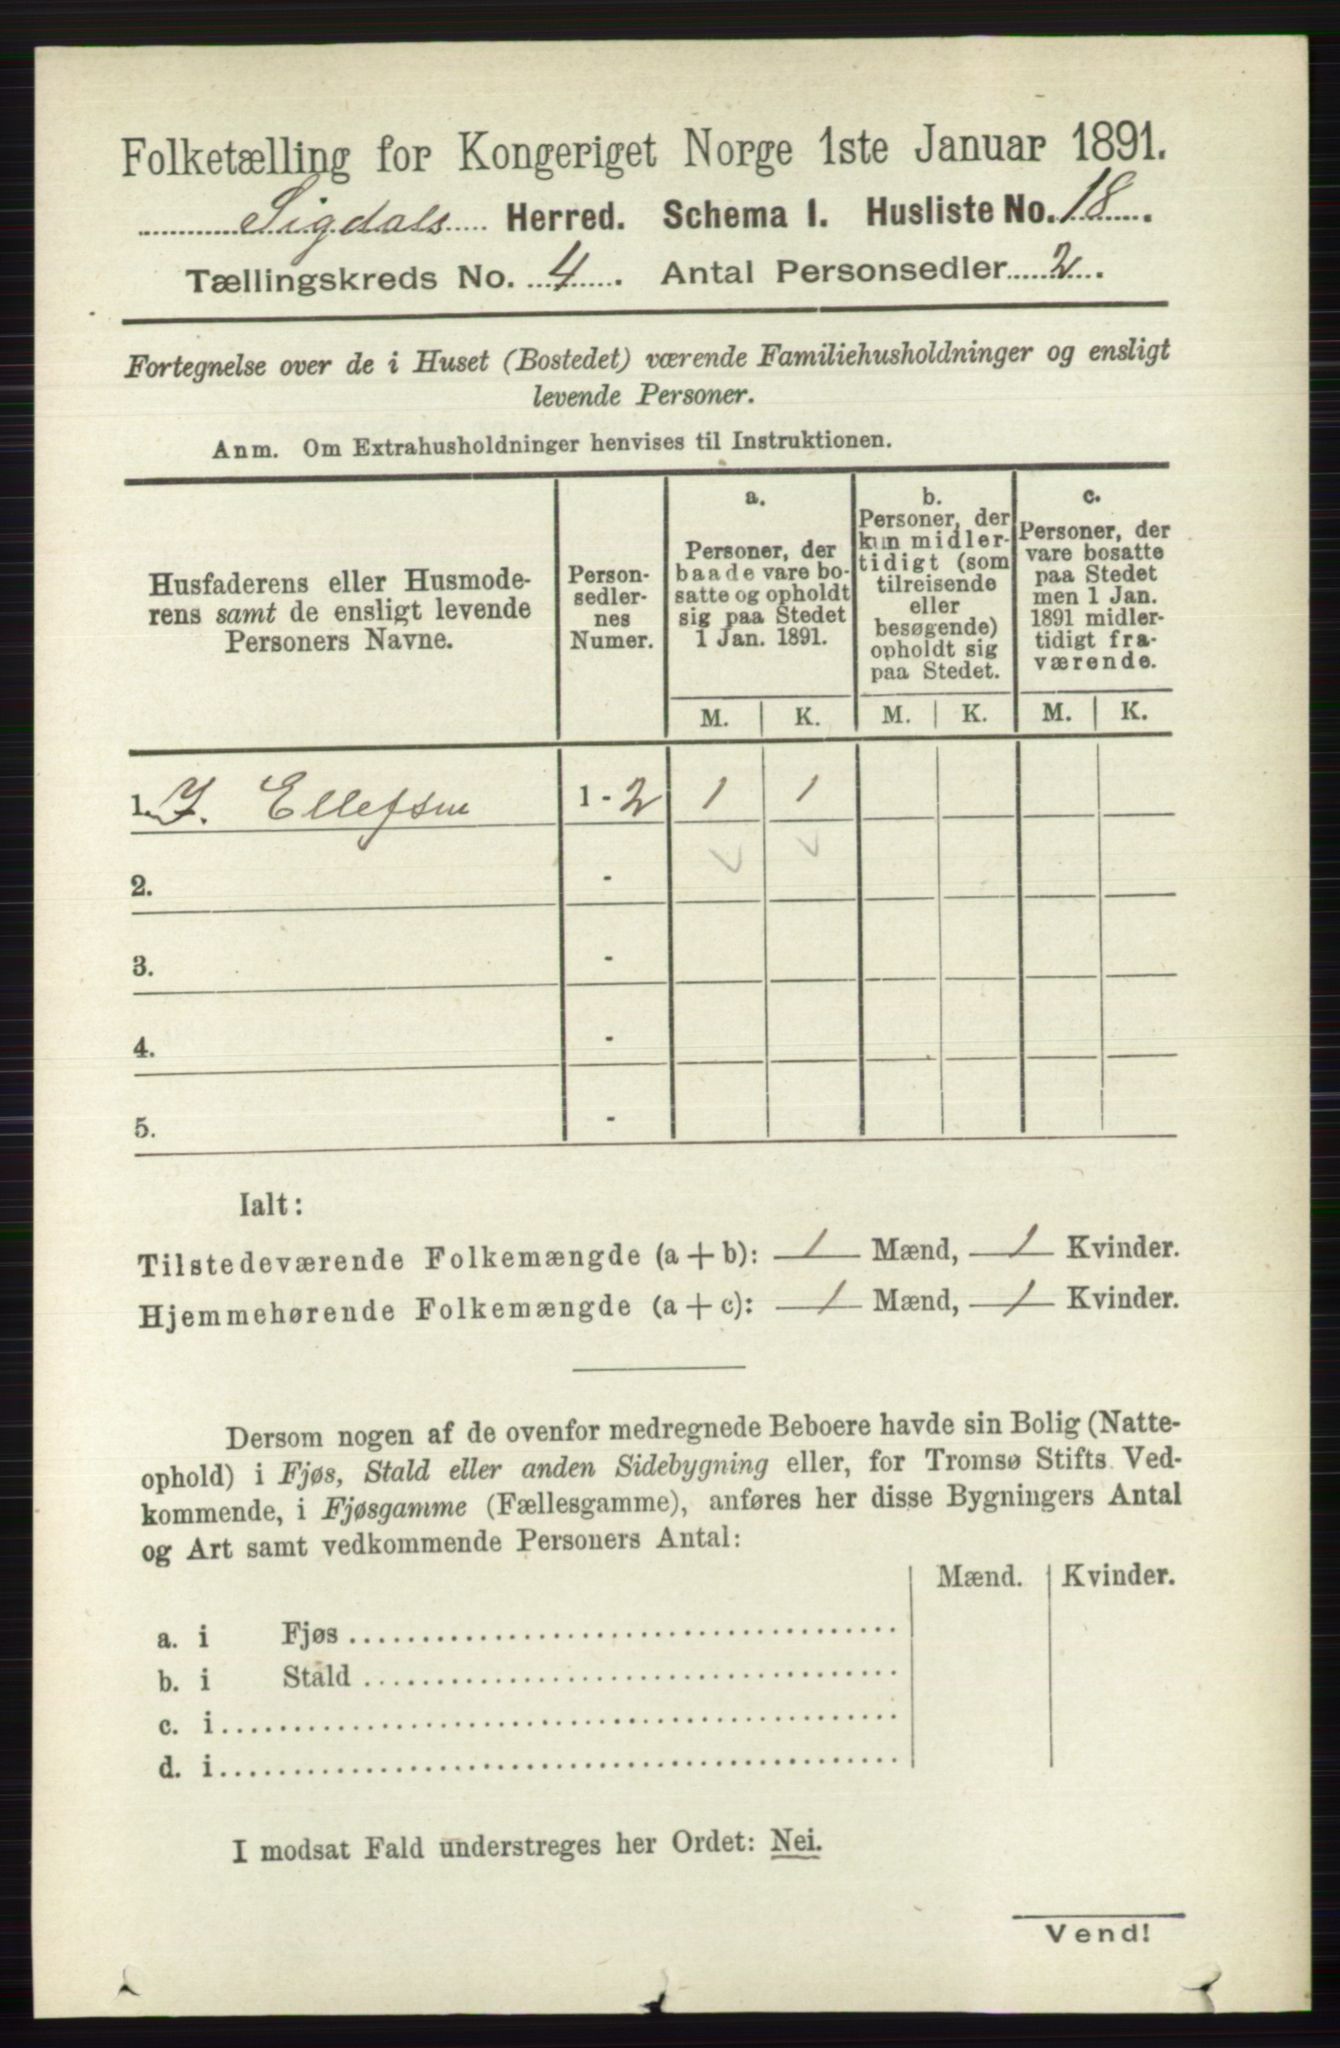 Folketælling for Kongeriget Norge 1ste Januar 1891.
Sigdals Herred. Schema I. Husliste No. 18.
Tællingskreds No. 4. Antal Personsedler 2.
Fortegnelse over de i Huset (Bostedet) værende Familiehusholdninger og ensligt
levende Personer.
Anm. Om Extrahusholdninger henvises til Instruktionen.
Husfaderens eller Husmode-
rens samt de ensligt levende
Personers Navne.
Person-
sedler-
nes
Numer.
a.
Personer, der
baade vare bo-
satte og opholdt
sig paa Stedet
1 Jan. 1891.
b.
Personer, der
kun midler-
tidigt (som
tilreisende
eller
besøgende)
opholdt sig
paa Stedet.
c.
Personer, der
vare bosatte
paa Stedet
men 1 Jan.
1891 midler-
tidigt fra-
værende.
M. K. M. K. M. K.
1. J. Ellefsen 1 - 2 1 1
2. -
3. -
4. -
5. -
Ialt:
Tilstedeværende Folkemængde (a + b): 1 Mænd, 1 Kvinder.
Hjemmehørende Folkemængde (a + c): 1 Mænd, 1 Kvinder.
Dersom nogen af de ovenfor medregnede Beboere havde sin Bolig (Natte-
ophold) i Fjøs, Stald eller anden Sidebygning eller, for Tromsø Stifts Ved-
kommende, i Fjøsgamme (Fællesgamme), anføres her disse Bygningers Antal
og Art samt vedkommende Personers Antal:
Mænd. Kvinder.
a. i Fjøs
b. i Stald
c. i
d. i
I modsat Fald understreges her Ordet: Nei.
Vend!